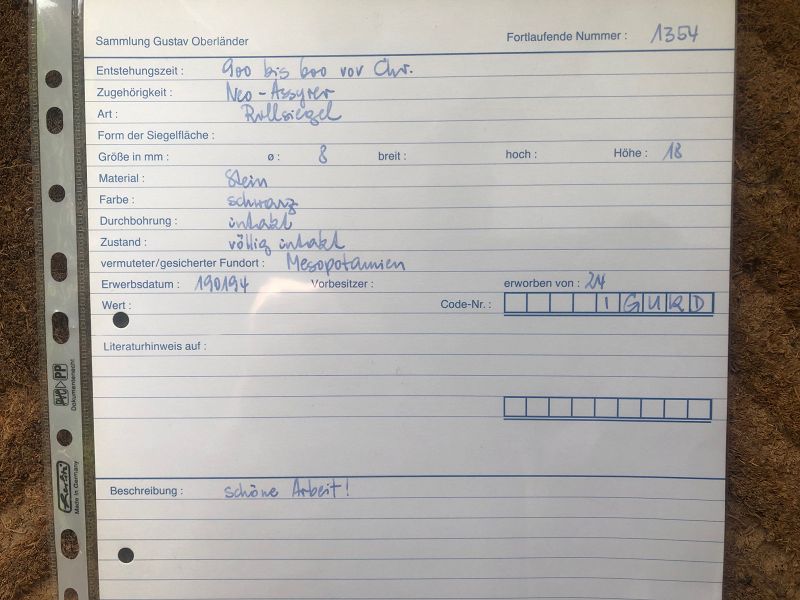 Sammlung Gustav Oberländer
Fortlaufende Nummer : 1354
Entstehungszeit : 900 bis 600 vor Chr.
Zugehörigkeit : Neo-Assyrer
Art : Rollsiegel
Form der Siegelfläche :
Größe in mm : ø : 8 breit : hoch : Höhe : 18
Material : Stein
Farbe : schwarz
Durchbohrung : intakt
Zustand : völlig intakt
vermuteter/gesicherter Fundort : Mesopotamien
Erwerbsdatum : 190194 Vorbesitzer : erworben von : 24
Wert : Code-Nr. : I G U R D
Literaturhinweis auf :
Beschreibung : schöne Arbeit!
PP
Dokumentenecht
Herlitz
Made in Germany